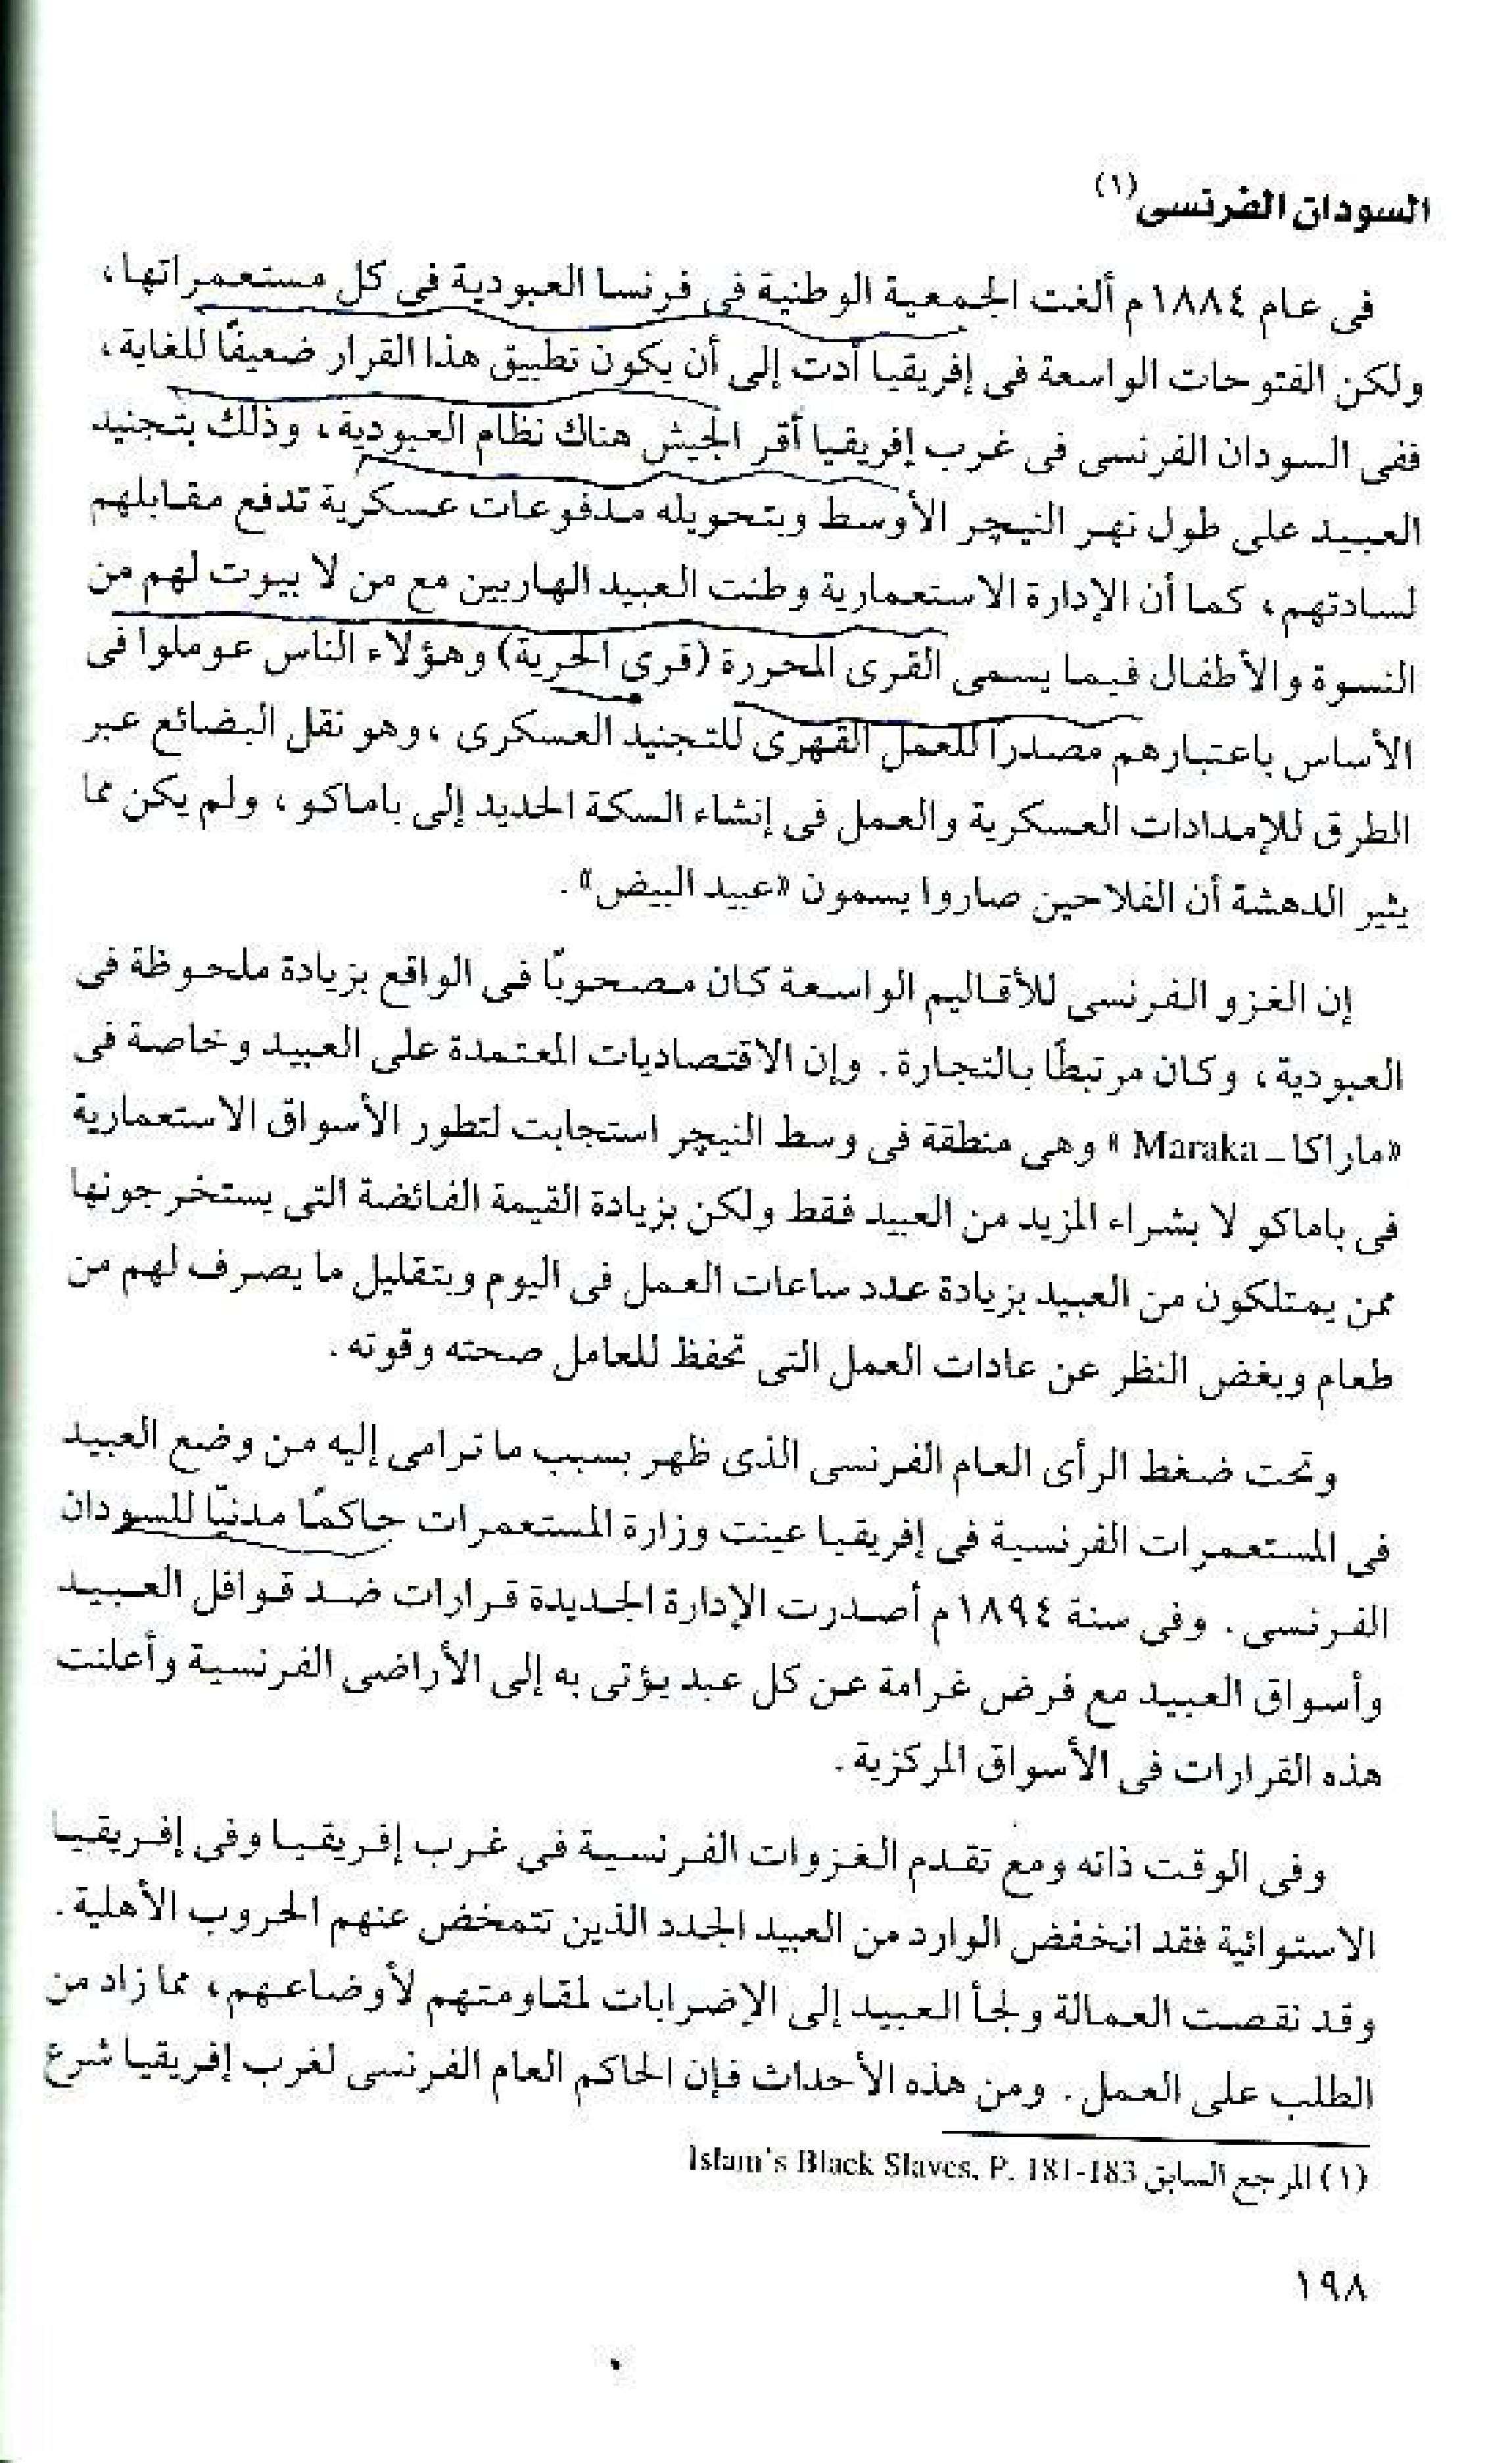 السودان الفرنسى(١)
فى عام ١٨٨٤م ألغت الجمعية الوطنية فى فرنسا العبودية فى كل مستعمراتها،
ولكن الفتوحات الواسعة فى إفريقيا أدت إلى أن يكون تطبيق هذا القرار ضعيفًا للغاية،
ففى السودان الفرنسى فى غرب إفريقيا أقر الجيش هناك نظام العبودية، وذلك بتجنيد
العبيد على طول نهر النيچر الأوسط وبتحويله مدفوعات عسكرية تدفع مقابلهم
لسادتهم، كما أن الإدارة الاستعمارية وطنت العبيد الهاربين مع من لا بيوت لهم من
النسوة والأطفال فيما يسمى القرى المحررة (قرى الحرية) وهؤلاء الناس عوملوا فى
الأساس باعتبارهم مصدرا للعمل القهرى للتجنيد العسكرى ،وهو نقل البضائع عبر
الطرق للإمدادات العسكرية والعمل فى إنشاء السكة الحديد إلى باماكو، ولم يكن مما
يثير الدهشة أن الفلاحين صاروا يسمون «عبيد البيض».
إن الغزو الفرنسى للأقاليم الواسعة كان مصحوبًا فى الواقع بزيادة ملحوظة فى
العبودية، وكان مرتبطًا بالتجارة. وإن الاقتصاديات المعتمدة على العبيد وخاصة فى
«ماراكا ـ Maraka» وهى منطقة فى وسط النيچر استجابت لتطور الأسواق الاستعمارية
فى باماكو لا بشراء المزيد من العبيد فقط ولكن بزيادة القيمة الفائضة التى يستخرجونها
ممن يمتلكون من العبيد بزيادة عدد ساعات العمل فى اليوم وبتقليل ما يصرف لهم من
طعام وبغض النظر عن عادات العمل التى تحفظ للعامل صحته وقوته.
وتحت ضغط الرأى العام الفرنسى الذى ظهر بسبب ما ترامى إليه من وضع العبيد
فى المستعمرات الفرنسية فى إفريقيا عينت وزارة المستعمرات حاكمًا مدنيًا للسودان
الفرنسى. وفى سنة ١٨٩٤م أصدرت الإدارة الجديدة قرارات ضد قوافل العبيد
وأسواق العبيد مع فرض غرامة عن كل عبد يؤتى به إلى الأراضى الفرنسية وأعلنت
هذه القرارات فى الأسواق المركزية.
وفى الوقت ذاته ومع تقدم الغزوات الفرنسية فى غرب إفريقيا وفى إفريقيا
الاستوائية فقد انخفض الوارد من العبيد الجدد الذين تتمخض عنهم الحروب الأهلية.
وقد نقصت العمالة ولجأ العبيد إلى الإضرابات لمقاومتهم لأوضاعهم، مما زاد من
الطلب على العمل. ومن هذه الأحداث فإن الحاكم العام الفرنسى لغرب إفريقيا شرع
(١) المرجع السابق Islam's Black Slaves, P. 181-183
١٩٨